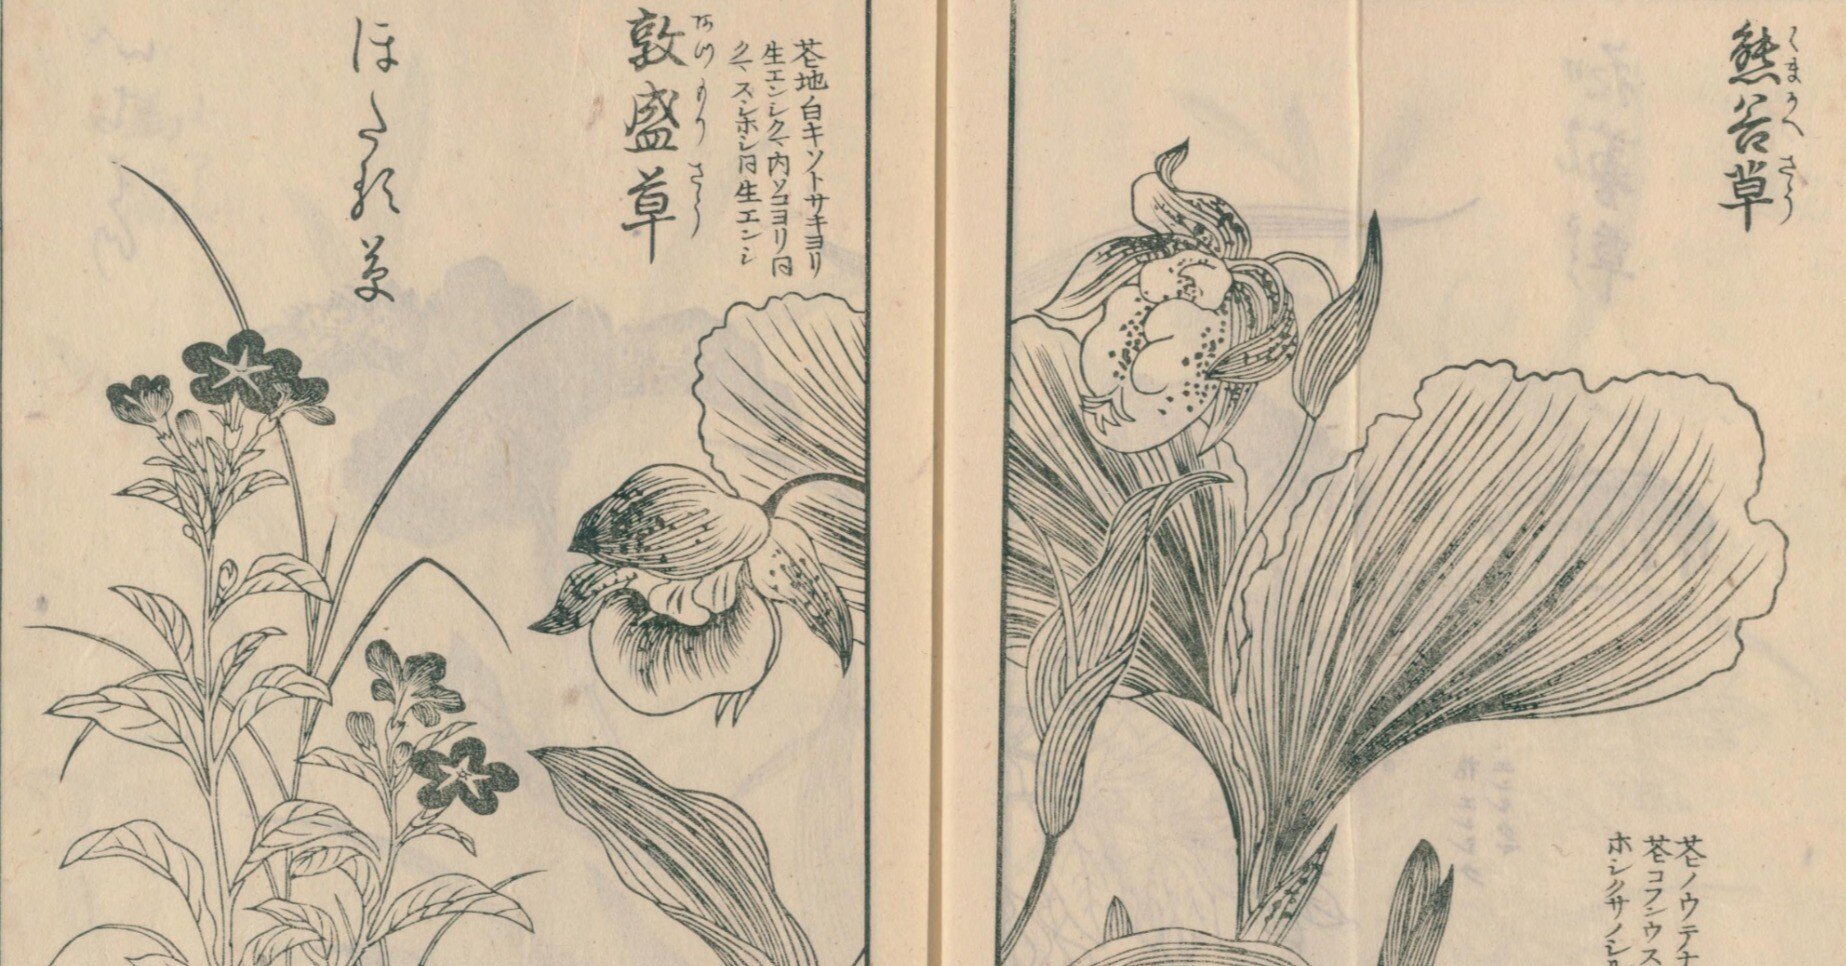 熊谷草
くまかへさう
花ノウテナ
花コフシウス
ホシクサノシ
花地白キソトサキヨリ
生エンシクマ内ソコヨリ同
クマスシホシ同生エンシ
敦盛草
あつもりさう
ほたる草